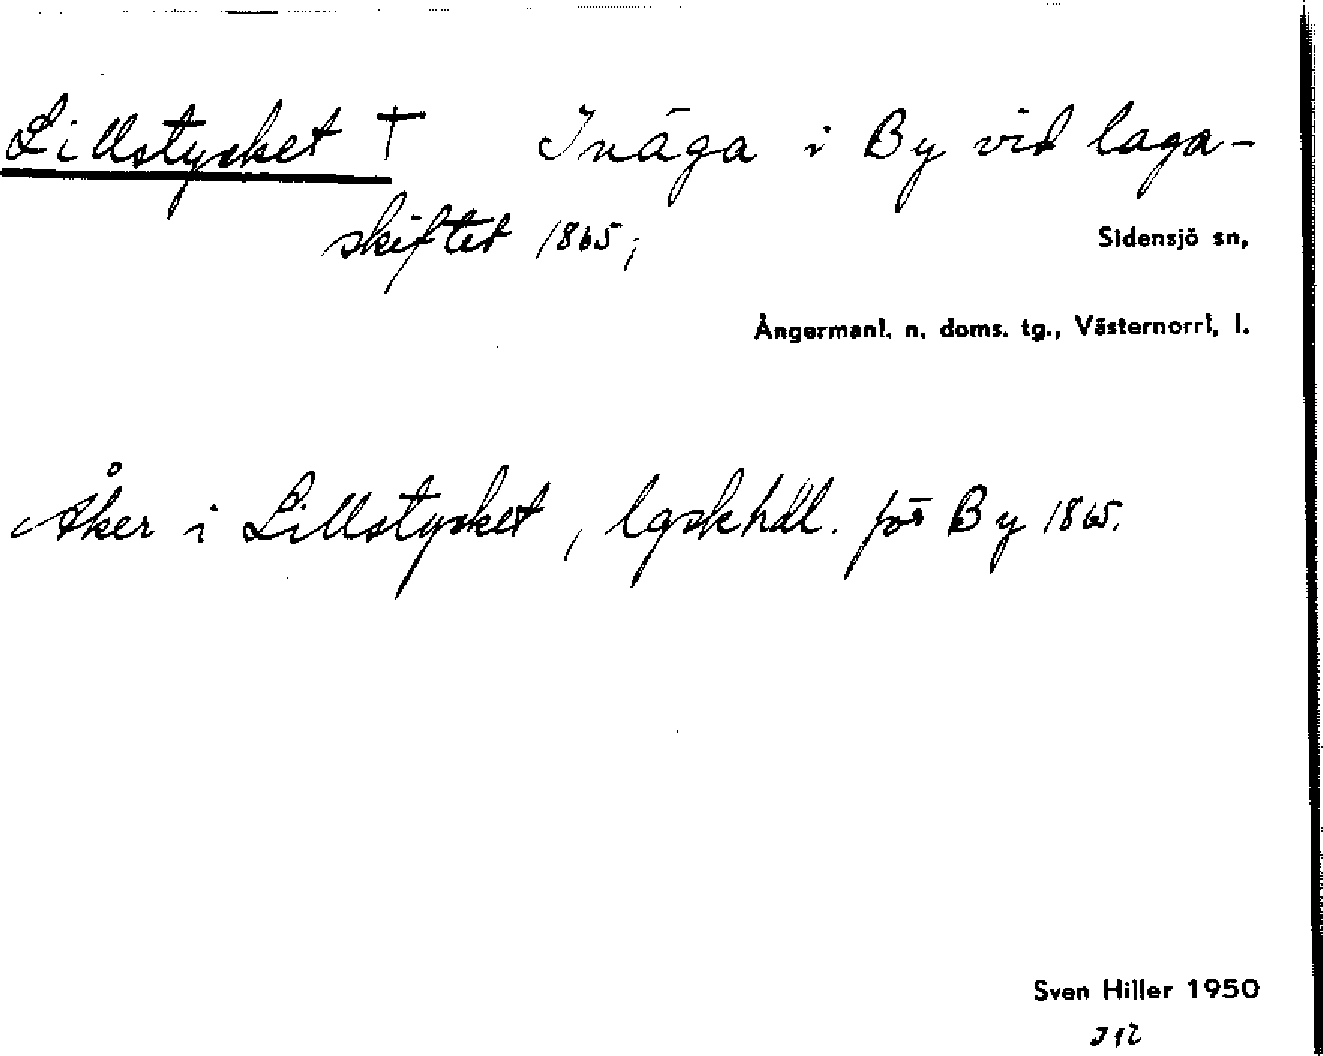 Lillstycket † Inäga i By vid laga-
skiftet 1865;
Sidensjö sn,
Ångermanl. n. doms. tg., Västernorrl. l.
Åker i Lillstycket, lgskhdl. för By 1865.
Sven Hiller 1950
J12